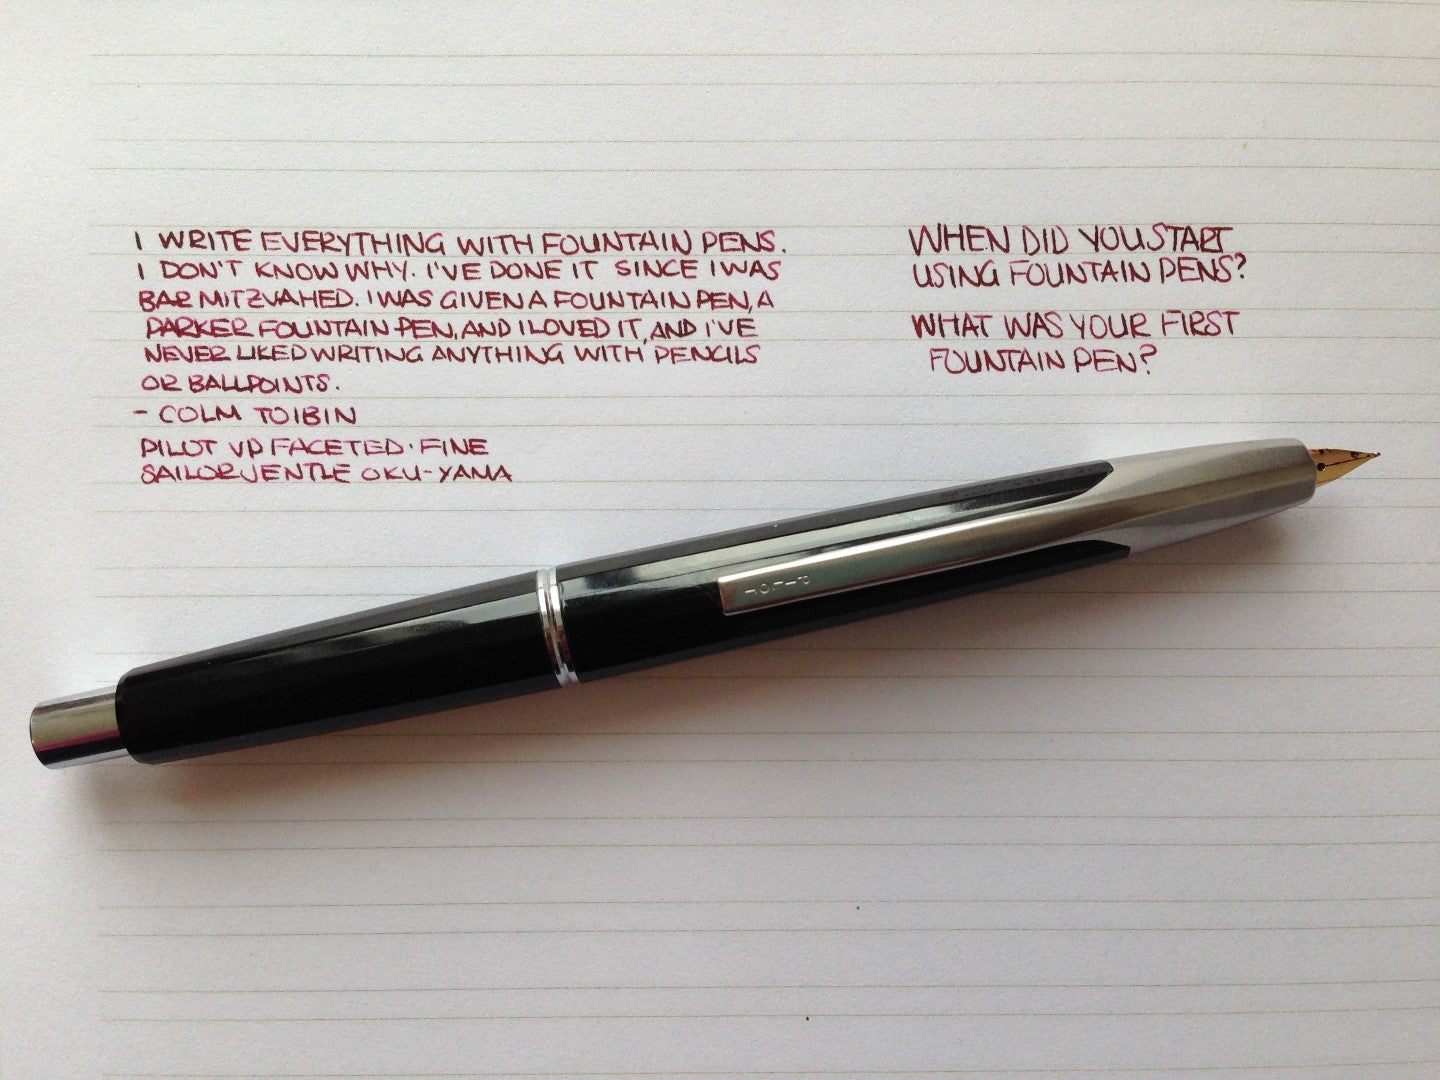 I WRITE EVERYTHING WITH FOUNTAIN PENS.
I DON'T KNOW WHY. I'VE DONE IT SINCE I WAS
BAR MITZVAHED. I WAS GIVEN A FOUNTAIN PEN, A
PARKER FOUNTAIN PEN, AND I LOVED IT, AND I'VE
NEVER LIKED WRITING ANYTHING WITH PENCILS
OR BALLPOINTS.
- COLM TOIBIN
PILOT VP FACETED · FINE
SAILOR JENTLE OKU-YAMA
WHEN DID YOU START
USING FOUNTAIN PENS?
WHAT WAS YOUR FIRST
FOUNTAIN PEN?
PILOT